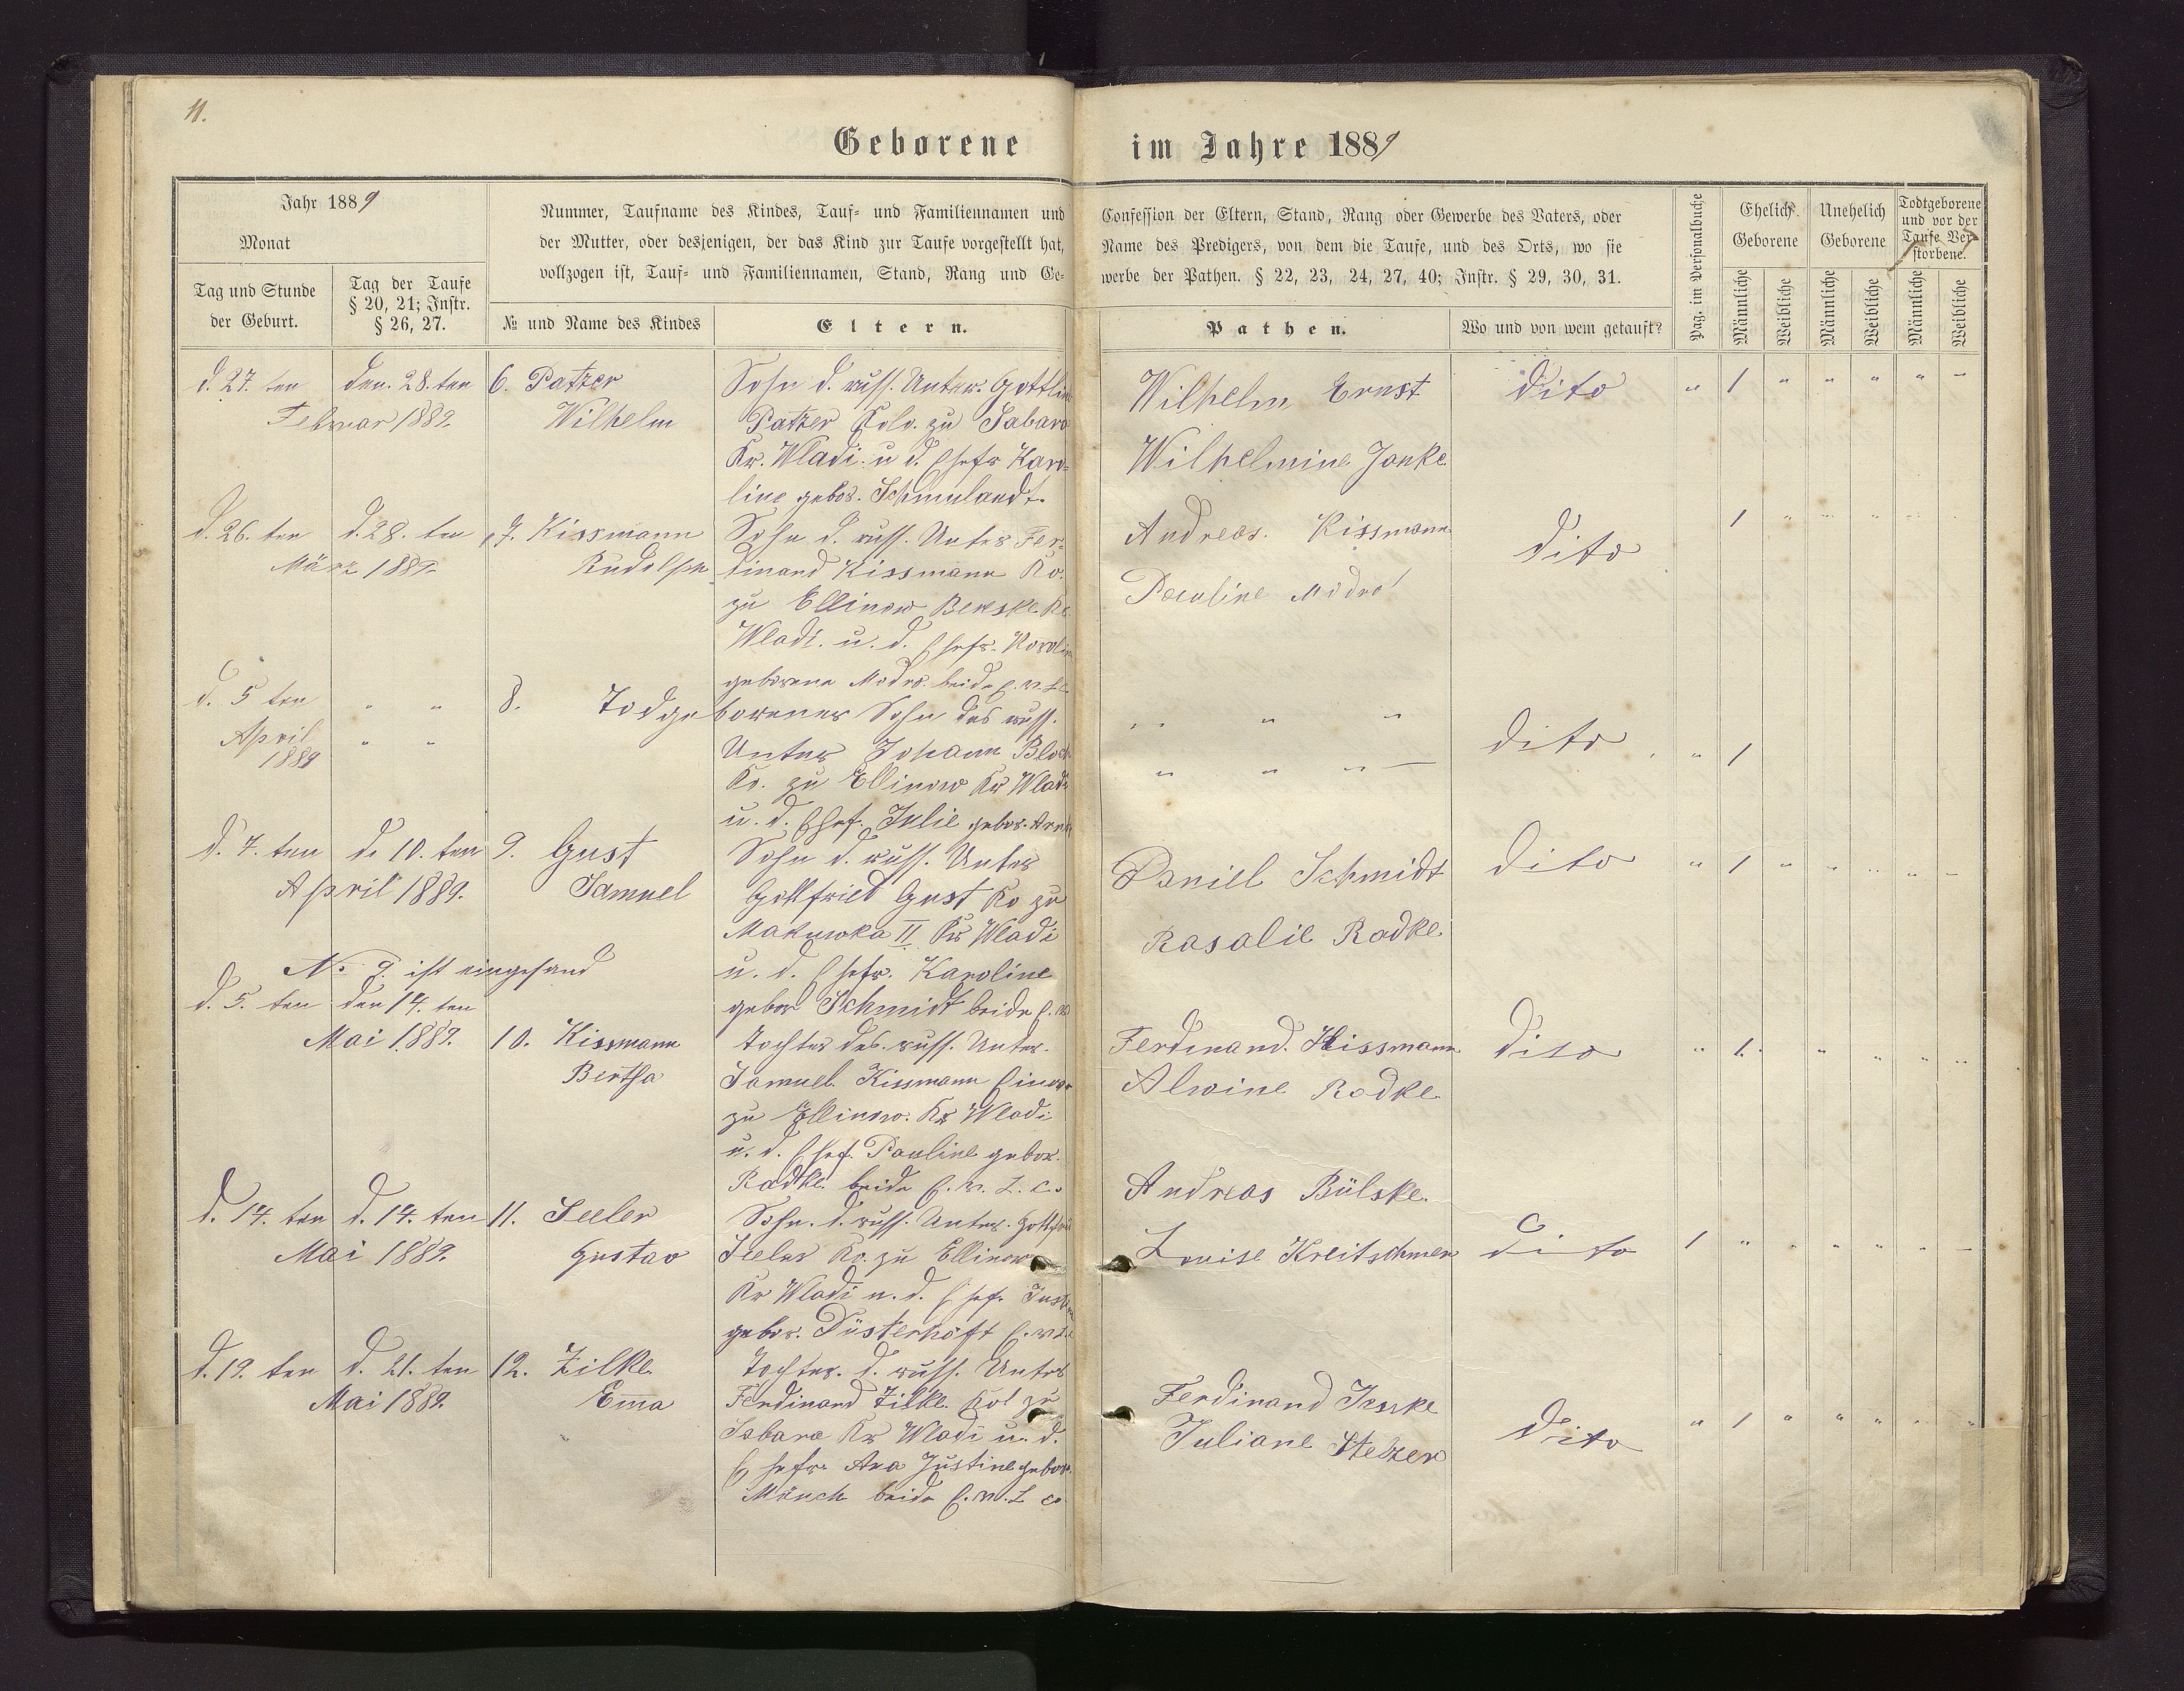 11.
Geborene im Jahre 1889
Jahr 1889
Monat
Tag und Stunde
der Geburt.
Tag der Taufe
§ 20, 21; Instr.
§ 26, 27.
Nummer, Taufname des Kindes, Tauf- und Familiennamen und
der Mutter, oder desjenigen, der das Kind zur Taufe vorgestellt hat,
vollzogen ist, Tauf- und Familiennamen, Stand, Rang und Ge-
№ und Name des Kindes
Eltern.
Confession der Eltern, Stand, Rang oder Gewerbe des Vaters, oder
Name des Predigers, von dem die Taufe, und des Orts, wo sie
werbe der Pathen. § 22, 23, 24, 27, 40; Instr. § 29, 30, 31.
Pathen.
Wo und von wem getauft?
Pag. im Personalbuche
Ehelich
Geborene
Unehelich
Geborene
Todtgeborene
und vor der
Taufe Ver-
storbene.
Männliche
Weibliche
Männliche
Weibliche
Männliche
Weibliche
d. 27. ten
den. 28. ten
Februar 1889.
6. Patzer
Wilhelm
Sohn d. russ. Unter. Gottlieb
Patzer Kolo. zu Sabara
Kr. Wladi. u d. Ehefr Karo-
line gebor. Schmulandt.
Wilhelm Ernst
Wilhelmine Janke
dito
" 1 " " " " –
d. 26. ten
d. 28. ten
März 1889.
7. Kissmann
Rudolph
Sohn d. russ. Unter Fer-
dinand Kissmann Ko.
zu Ellinow Kr.
Wladi. u. d. Ehefr. Karolin
geborene Modro. beide E. v. L.
Andreas. Kissmann
Pauline Modro
dito
1
d. 5 ten
April
1889
" "
" "
8. Todgeborener Sohn des russ.
Unter Johann
Ko. zu Ellinow Kr Wladi
u. d. Ehef. Julie gebor.
" " "
" " " –
dito
" 1
d. 7. ten
d. 10. ten
April 1889.
9. Gust
Samuel
Sohn d. russ. Unter
Gottfried Gust Ko zu
Makowka II Kr Wladi
u. d. Ehefr. Karoline
gebor Schmidt beide E.
Daniel Schmidt
Rasalie Radke
dito
" 1 " " " " –
No 9. ist eingesand
d. 5. ten
den 14. ten
Mai 1889.
10. Kissmann
Bertha
Tochter des. russ. Unter.
Samuel. Kissmann
zu Ellinow. Kr Wladi
u. d. Ehef. Pauline gebor.
Radke beide E. v. L. C.
Ferdinand. Kissmann
Alwine Radke
dito
" 1. " " " "
d. 14. ten
d. 14. ten
Mai 1889.
11. Seeler
Gustav
Sohn. d. russ. Unter. Gottfrie
Seeler Ko. zu Ellinow
Kr Wladi u. d. Ehef. Justine
gebor. Düsterhöft E. v. L.
Andreas Bülske.
Louise Kreitschmer
dito
1 " " " " " –
d. 19. ten
d. 21. ten
Mai 1889.
12. Zilke
Emma
Tochter. d. russ. Unter
Ferdinand Zilke. Kol zu
Sabara Kr Wladi u. d.
Ehefr. Ana Justine gebor.
Mönch beide E. v. L C.
Ferdinand Jesske
Juliane Stelzer
dito
" 1 " " " " "